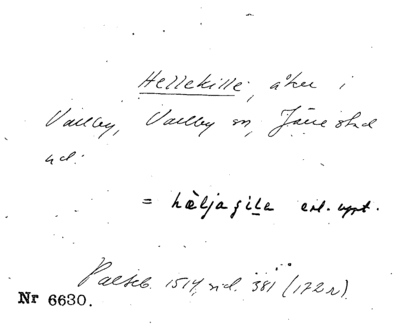 Hellekille, åker i
Vallby, Vallby sn, Järrestad
hd:
= hàljagila enl. uppt.
Palteb. 1514, sid. 381 (172 r).
Nr 6630.